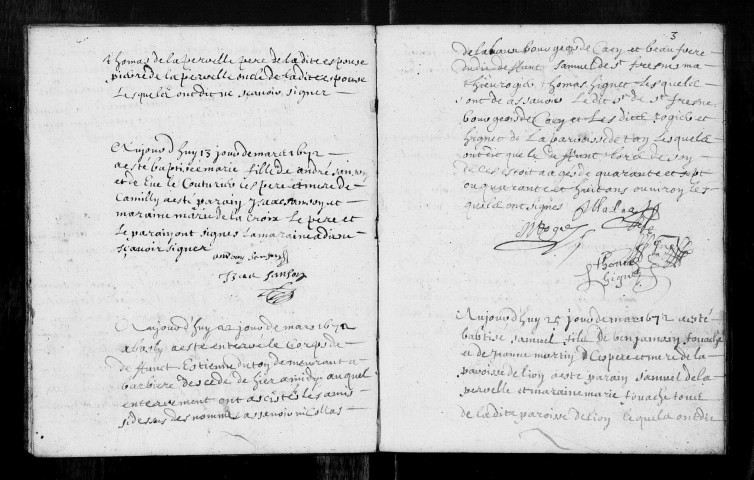 Thomas de la perrelle pere de ladite espouse
pierre de la perrelle oncle de ladite espouse
Lesquels ont dit ne scavoir signer
Aujourd'huy 13 jour de mars 1672
a esté baptisee marie fille de andré sanson
et de Eve le Couturier les pere et mere de
Camilly a esti parain Isaac sanson et
maraine marie de la Croix Le pere et
Le parain ont signes La maraine a dit ne
scavoir signer
andrey sanson
Isaac sanson
Aujourd'huy 22 jour de mars 1672
a basly a esté enterre le Corps de
de ffunct Estienne du ton demeurant a
barbiere decede de hier a midy auquel
enterement ont ascistés les amis
sidessus des nommés assavoir nicollas
3
de lahaye bourgeois de Caen et beau frere
dudit deffunt samuel de st fresne ma
thieu rogié thomas hignet lesquels
sont de assavoir Ledit sr de st fresne
bourgeois de Caen et Les dits rogié et
hignet de La paroisse de ton Lesquels
ont dit que le deffunt lors de son
deces estoit aagé de quarante et sept
ou quarante et huit ans ou viron les
quels ont signés
M Rogie
thomas
hignet
Aujourd'huy 25 jour de mars 1672 a esté
baptise samuel fils de benjamin touache
et de jeanne martin Les pere et mere de la
paroisse de lion a esté parain samuel de la
perrelle et maraine marie touache tout
de ladite paroisse de lion lequels ont dit